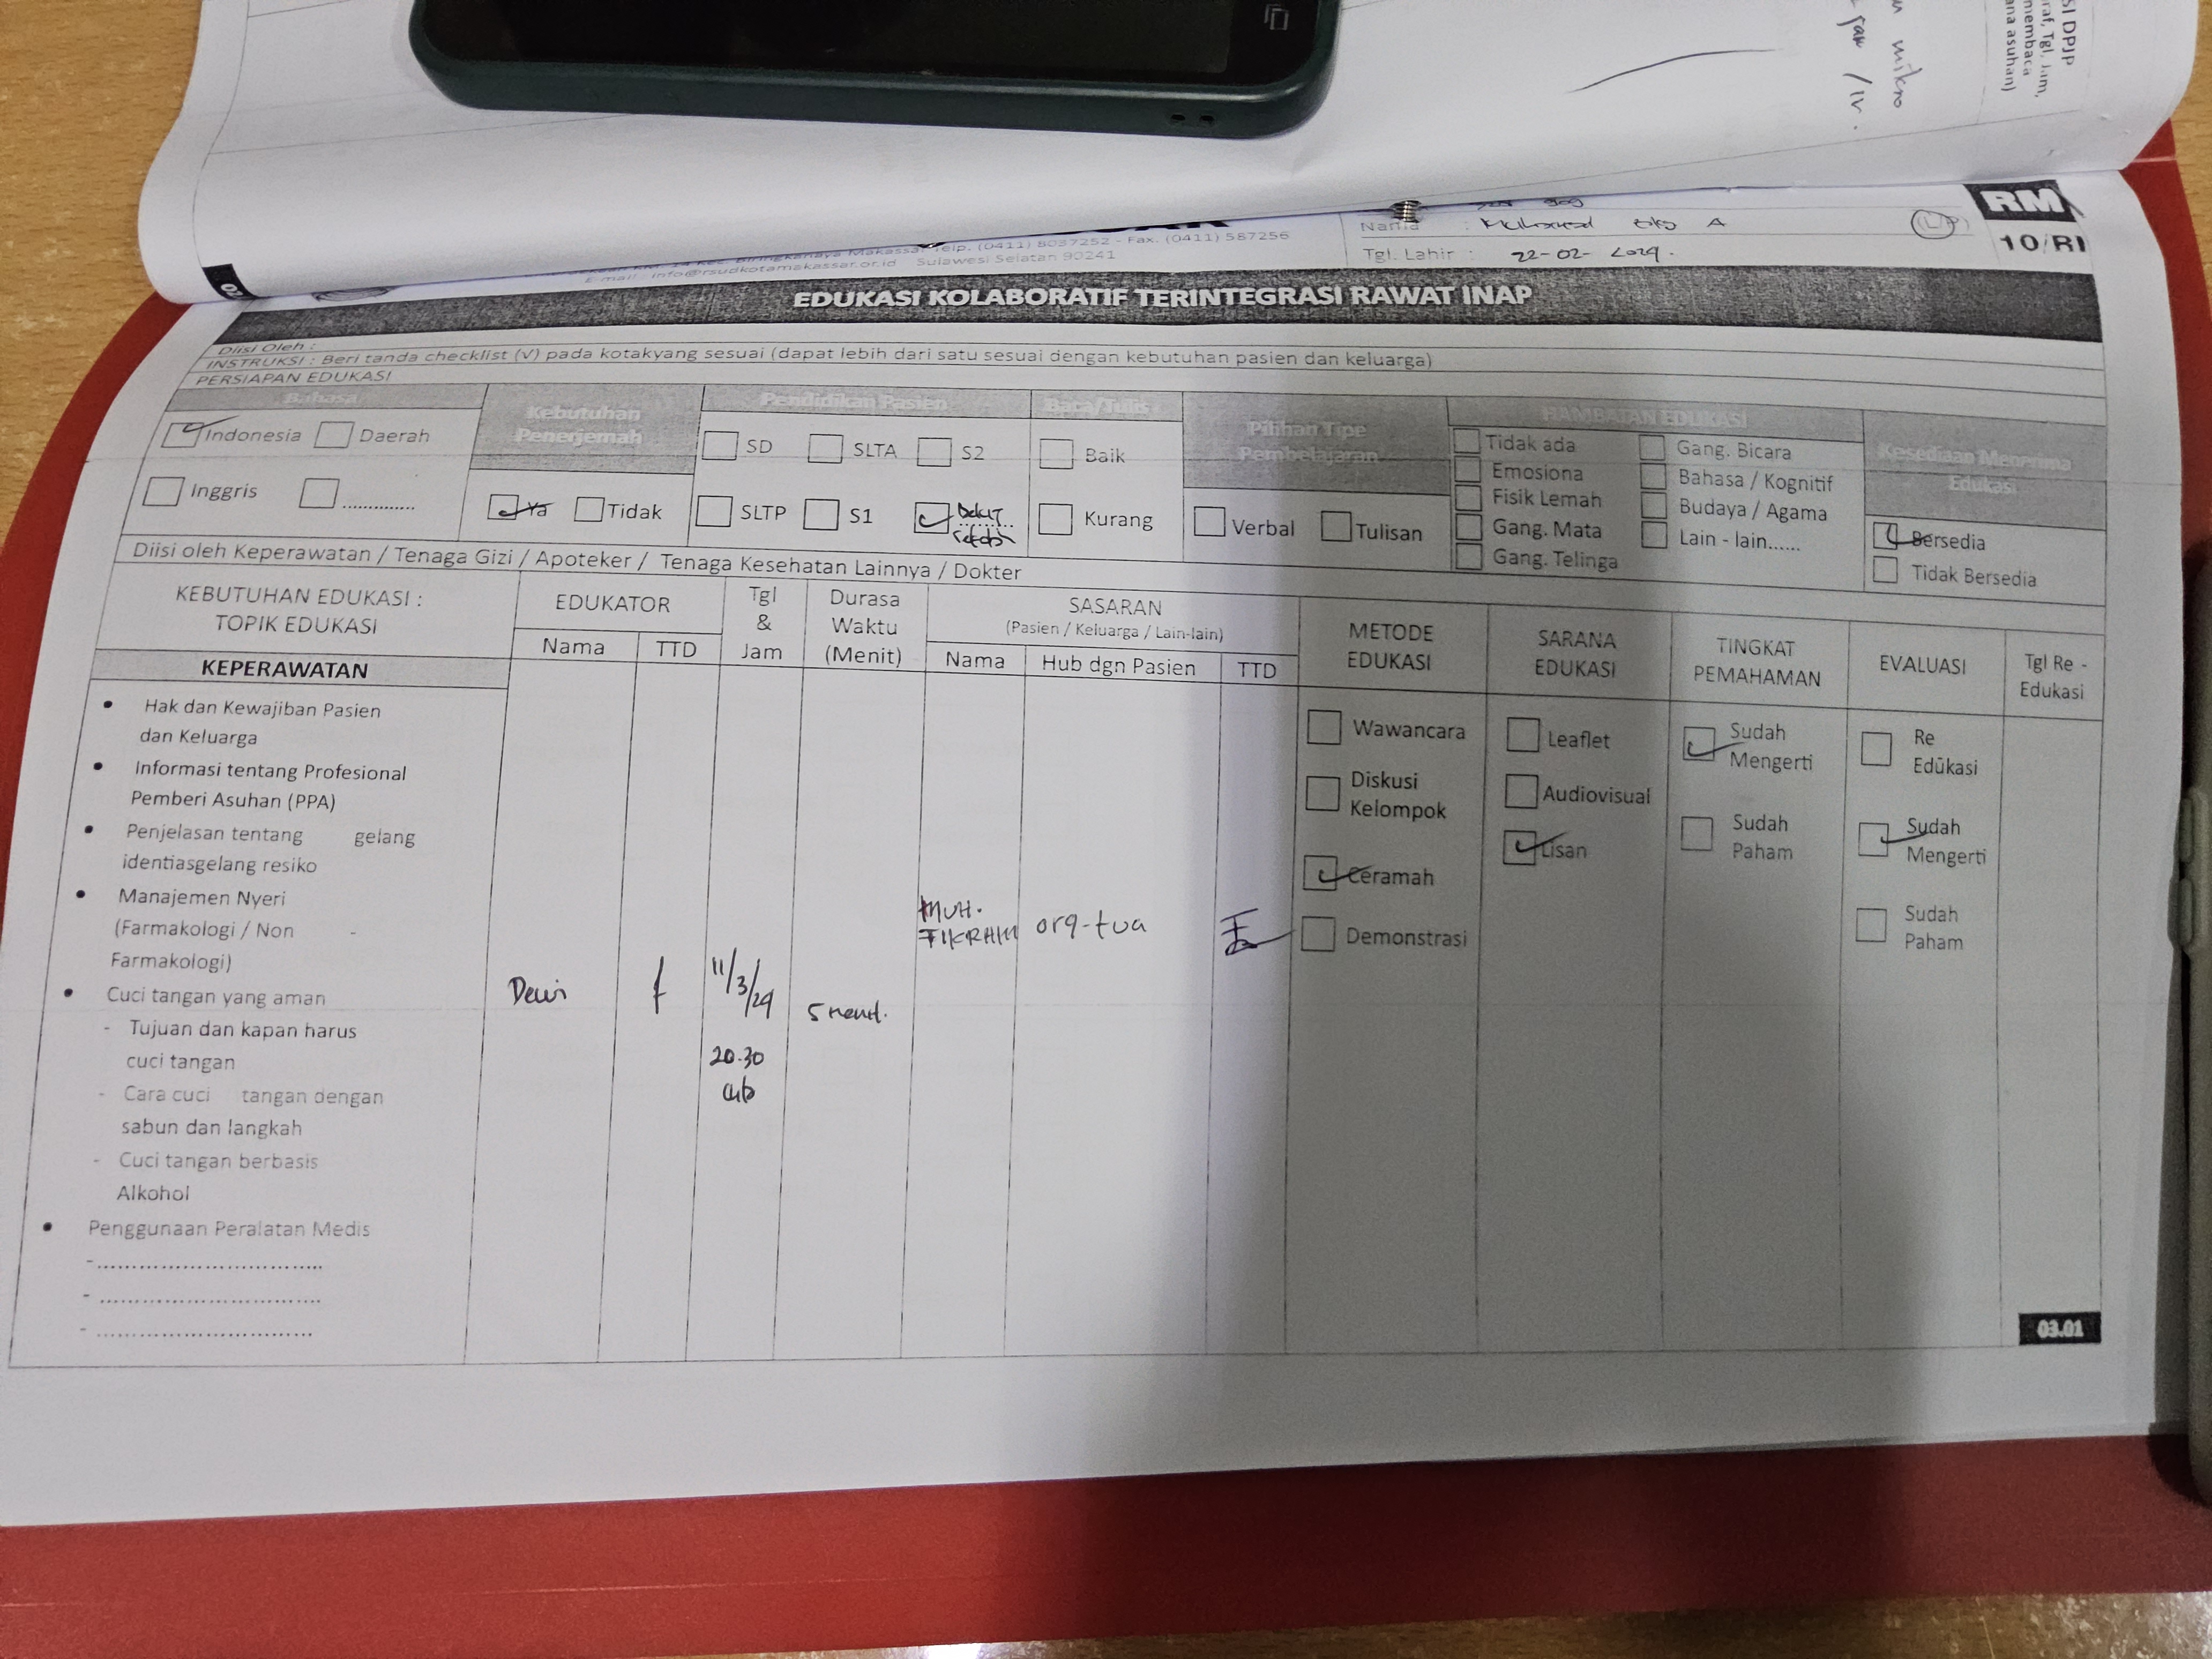 SI DPJP
raf, Tgl, Jam,
membaca
ana asuhan)
mikro
/ IV.
02
Makassar Telp. (0411) 8037252 - Fax. (0411) 587256
E-mail : info@rsudkotamakassar.or.id Sulawesi Selatan 90241
Nama : A
(LP)
Tgl. Lahir : 22-02-2024.
RM
10/RI
EDUKASI KOLABORATIF TERINTEGRASI RAWAT INAP
Diisi Oleh :
INSTRUKSI : Beri tanda checklist (V) pada kotakyang sesuai (dapat lebih dari satu sesuai dengan kebutuhan pasien dan keluarga)
PERSIAPAN EDUKASI
Bahasa
Indonesia Daerah
Inggris ..............
Kebutuhan
Penerjemah
Ya Tidak
Pendidikan Pasien
SD SLTA S2
SLTP S1
Baca/Tulis
Baik
Kurang
Pilihan Tipe
Pembelajaran
Verbal Tulisan
HAMBATAN EDUKASI
Tidak ada Gang. Bicara
Emosiona Bahasa / Kognitif
Fisik Lemah Budaya / Agama
Gang. Mata Lain - lain......
Gang. Telinga
Kesediaan Menerima
Edukasi
Bersedia
Tidak Bersedia
Diisi oleh Keperawatan / Tenaga Gizi / Apoteker / Tenaga Kesehatan Lainnya / Dokter
KEBUTUHAN EDUKASI :
TOPIK EDUKASI
EDUKATOR
Nama TTD
Tgl
&
Jam
Durasa
Waktu
(Menit)
SASARAN
(Pasien / Keluarga / Lain-lain)
Nama Hub dgn Pasien TTD
METODE
EDUKASI
SARANA
EDUKASI
TINGKAT
PEMAHAMAN
EVALUASI
Tgl Re -
Edukasi
KEPERAWATAN
• Hak dan Kewajiban Pasien
dan Keluarga
• Informasi tentang Profesional
Pemberi Asuhan (PPA)
• Penjelasan tentang gelang
identiasgelang resiko
• Manajemen Nyeri
(Farmakologi / Non -
Farmakologi)
• Cuci tangan yang aman
- Tujuan dan kapan harus
cuci tangan
- Cara cuci tangan dengan
sabun dan langkah
- Cuci tangan berbasis
Alkohol
• Penggunaan Peralatan Medis
- ..............................
- ..............................
- ..............................
Dewi
11/3/24
20.30
5 menit.
MUH.
FIKRAM
org-tua
Wawancara
Diskusi
Kelompok
Ceramah
Demonstrasi
Leaflet
Audiovisual
Lisan
Sudah
Mengerti
Sudah
Paham
Re
Edukasi
Sudah
Mengerti
Sudah
Paham
03.01